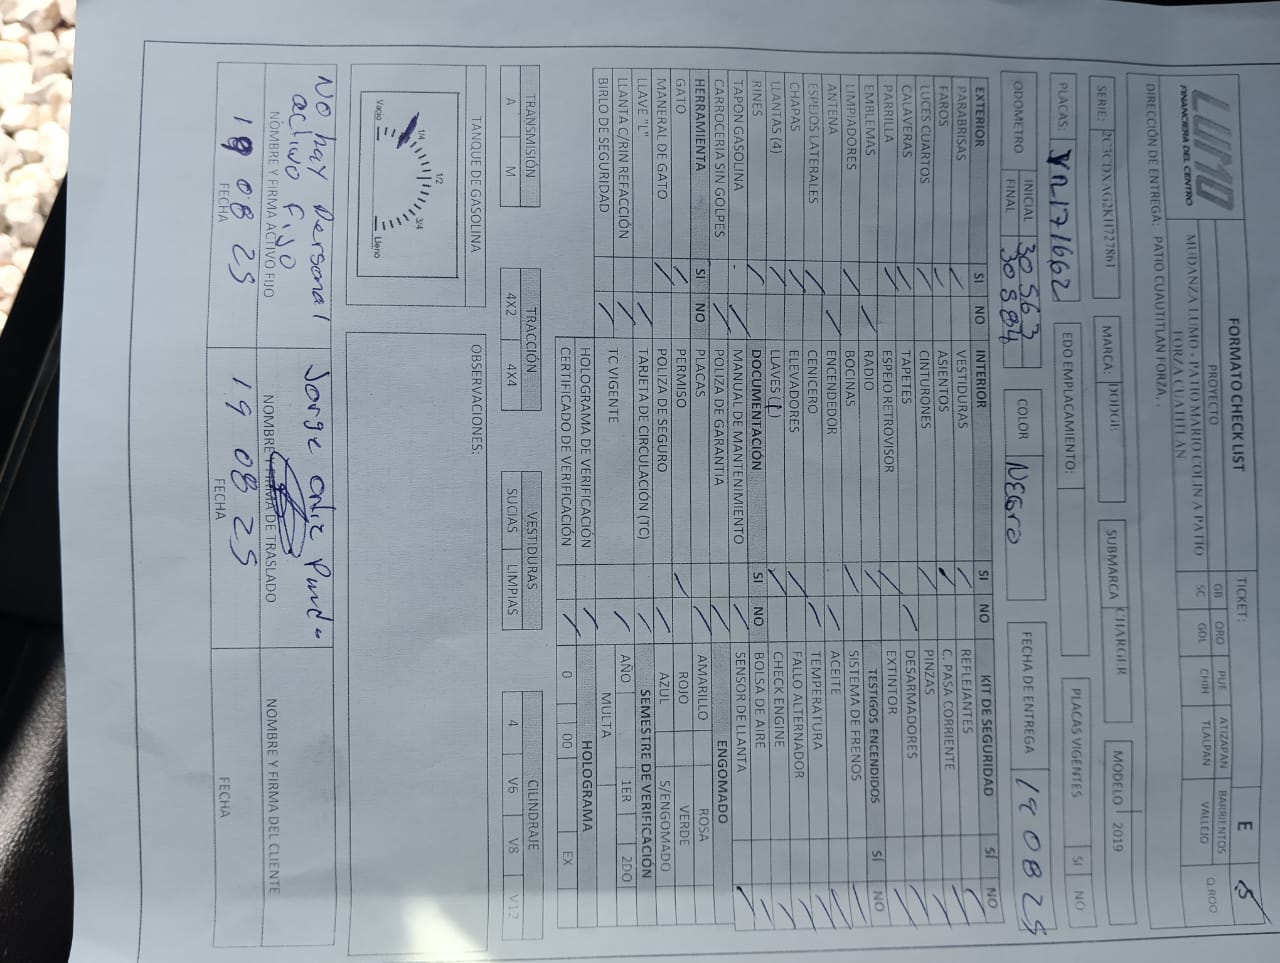 LUMO
FINANCIERA DEL CENTRO
FORMATO CHECK LIST
PROYECTO
MUDANZA LUMO - PATIO MARIO COLIN A PATIO
FORZA CUATITLAN
TICKET: E S
GB QRO PUE ATIZAPAN BARRIENTOS Q.ROO
SC GDL CHIH TLALPAN VALLEJO
DIRECCIÓN DE ENTREGA: PATIO CUAUTITLAN FORZA, .
SERIE: 2C3CDXAG2KH727861 MARCA: DODGE SUBMARCA CHARGER MODELO 2019
PLACAS: EDO EMPLACAMIENTO: PLACAS VIGENTES SI NO
ODOMETRO INICIAL 30563 COLOR Negro FECHA DE ENTREGA 19 08 25
FINAL 30584
EXTERIOR SI NO
PARABRISAS
FAROS
LUCES CUARTOS
CALAVERAS
PARRILLA
EMBLEMAS
LIMPIADORES
ANTENA
ESPEJOS LATERALES
CHAPAS
LLANTAS (4)
RINES
TAPON GASOLINA
CARROCERIA SIN GOLPES
HERRAMIENTA SI NO
GATO
MANERAL DE GATO
LLAVE "L"
LLANTA C/RIN REFACCIÓN
BIRLO DE SEGURIDAD
INTERIOR SI NO
VESTIDURAS
ASIENTOS
CINTURONES
TAPETES
ESPEJO RETROVISOR
RADIO
BOCINAS
ENCENDEDOR
CENICERO
ELEVADORES
LLAVES (1)
DOCUMENTACIÓN SI NO
MANUAL DE MANTENIMIENTO
POLIZA DE GARANTIA
PLACAS
PERMISO
POLIZA DE SEGURO
TARJETA DE CIRCULACIÓN (TC)
TC VIGENTE
HOLOGRAMA DE VERIFICACIÓN
CERTIFICADO DE VERIFICACIÓN
KIT DE SEGURIDAD SÍ NO
REFLEJANTES
C. PASA CORRIENTE
PINZAS
DESARMADORES
EXTINTOR
TESTIGOS ENCENDIDOS SÍ NO
SISTEMA DE FRENOS
ACEITE
TEMPERATURA
FALLO ALTERNADOR
CHECK ENGINE
BOLSA DE AIRE
SENSOR DE LLANTA
ENGOMADO
AMARILLO ROSA
ROJO VERDE
AZUL S/ENGOMADO
SEMESTRE DE VERIFICACIÓN
AÑO 1ER 2DO
MULTA
HOLOGRAMA
0 00 EX
TRANSMISIÓN TRACCIÓN VESTIDURAS CILINDRAJE
A M 4X2 4X4 SUCIAS LIMPIAS 4 V6 V8 V12
TANQUE DE GASOLINA
Vacio 1/4 1/2 3/4 Lleno
OBSERVACIONES:
No hay personal
activo fijo
NOMBRE Y FIRMA ACTIVO FIJO
19 08 25
FECHA
Jorge Ortiz
NOMBRE Y FIRMA DE TRASLADO
19 08 25
FECHA
NOMBRE Y FIRMA DEL CLIENTE
FECHA